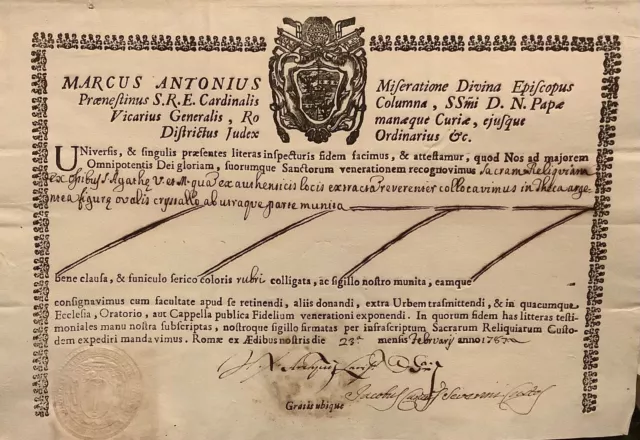 MARCUS ANTONIUS Miseratione Divina Episcopus
Prænestinus S.R.E. Cardinalis Columna, SSmi D. N. Papæ
Vicarius Generalis, Ro manæque Curiæ, ejusque
Districtus Judex Ordinarius &c.
UNiversis, & singulis præsentes literas inspecturis fidem facimus, & attestamur, quod Nos ad majorem
Omnipotentis Dei gloriam, suorumque Sanctorum venerationem recognovimus Sacram Reliquiam
ex Ossibus S. Agathę V. et M. quā ex authenticis locis extractā reverenter collocavimus in theca arge
ntea figurę ovalis crystallo ab utraque parte munita
bene clausa, & funiculo serico coloris rubri colligata, ac sigillo nostro munita, eamque
consignavimus cum facultate apud se retinendi, aliis donandi, extra Urbem trasmittendi, & in quacumque
Ecclesia, Oratorio, aut Cappella publica Fidelium venerationi exponendi. In quorum fidem has litteras testi-
moniales manu nostra subscriptas, nostroque sigillo firmatas per infrascriptum Sacrarum Reliquiarum Custo-
dem expediri mandavimus. Romæ ex Ædibus nostris die 23ª mensis Februarij anno
Gratis ubique Jacobus Severini Custos